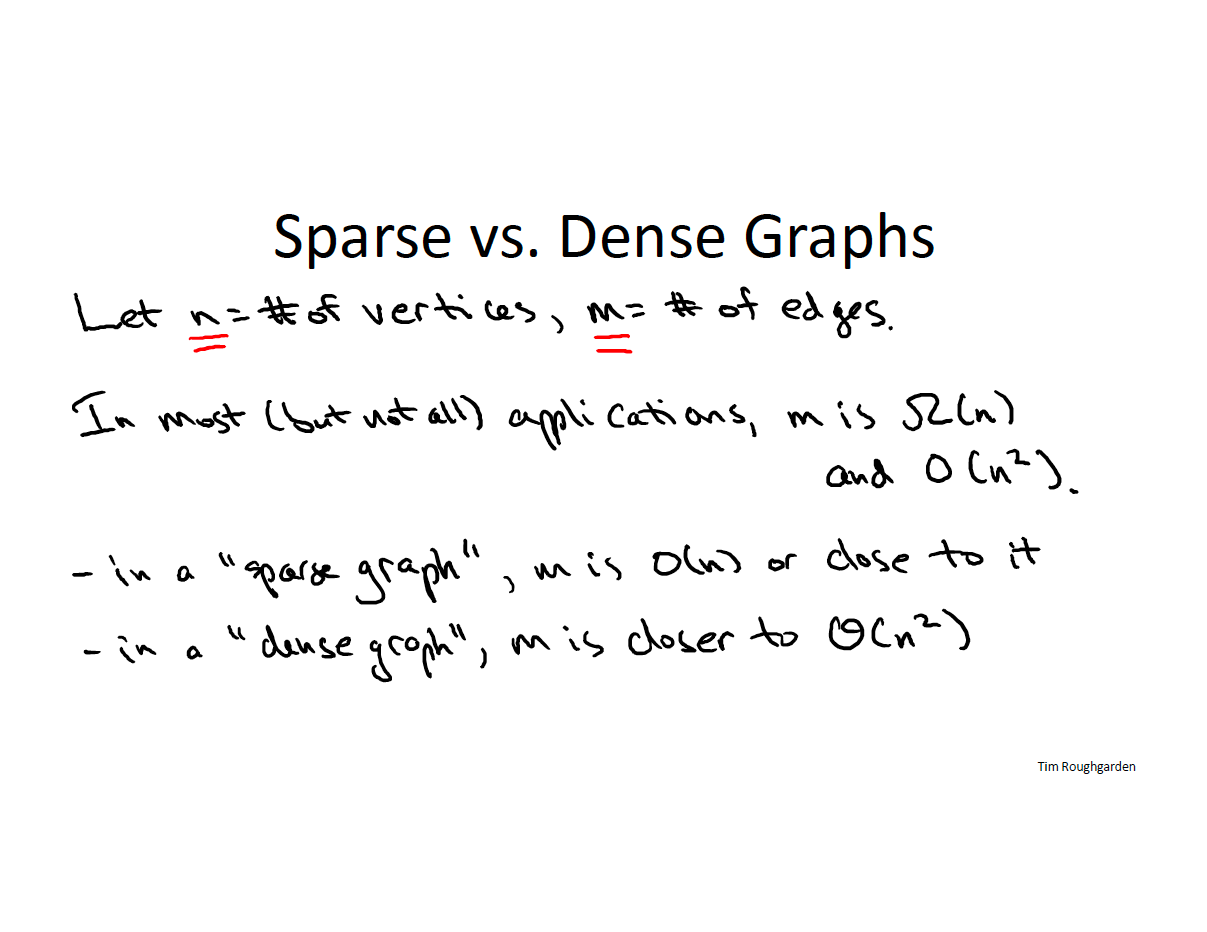 Sparse vs. Dense Graphs
Let n = # of vertices, m = # of edges.
In most (but not all) applications, m is Ω(n)
and O(n²).
- in a "sparse graph", m is O(n) or close to it
- in a "dense graph", m is closer to Θ(n²)
Tim Roughgarden